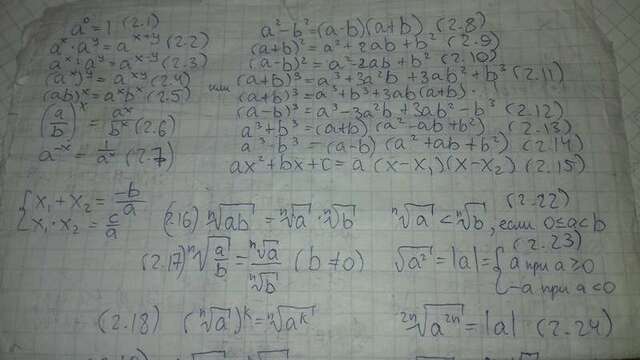 a⁰ = 1 (2.1)
aˣ · aʸ = aˣ⁺ʸ (2.2)
aˣ : aʸ = aˣ⁻ʸ (2.3)
(aˣ)ʸ = aˣʸ (2.4)
(ab)ˣ = aˣbˣ (2.5)
(a/b)ˣ = aˣ/bˣ (2.6)
a⁻ˣ = 1/aˣ (2.7)
a² - b² = (a-b)(a+b) (2.8)
(a+b)² = a² + 2ab + b² (2.9)
(a-b)² = a² - 2ab + b² (2.10)
(a+b)³ = a³ + 3a²b + 3ab² + b³ (2.11)
или (a+b)³ = a³ + b³ + 3ab(a+b)
(a-b)³ = a³ - 3a²b + 3ab² - b³ (2.12)
a³ + b³ = (a+b)(a² - ab + b²) (2.13)
a³ - b³ = (a-b)(a² + ab + b²) (2.14)
ax² + bx + c = a(x-x₁)(x-x₂) (2.15)
{x₁ + x₂ = -b/a
x₁ · x₂ = c/a
(2.16) ⁿ√ab = ⁿ√a · ⁿ√b
(2.22)
ⁿ√a < ⁿ√b, если 0≤a<b
(2.17) ⁿ√(a/b) = ⁿ√a/ⁿ√b (b≠0)
(2.23)
√a² = |a| = {a при a≥0
-a при a<0
(2.18) (ⁿ√a)ᵏ = ⁿ√aᵏ
²ⁿ√a²ⁿ = |a| (2.24)